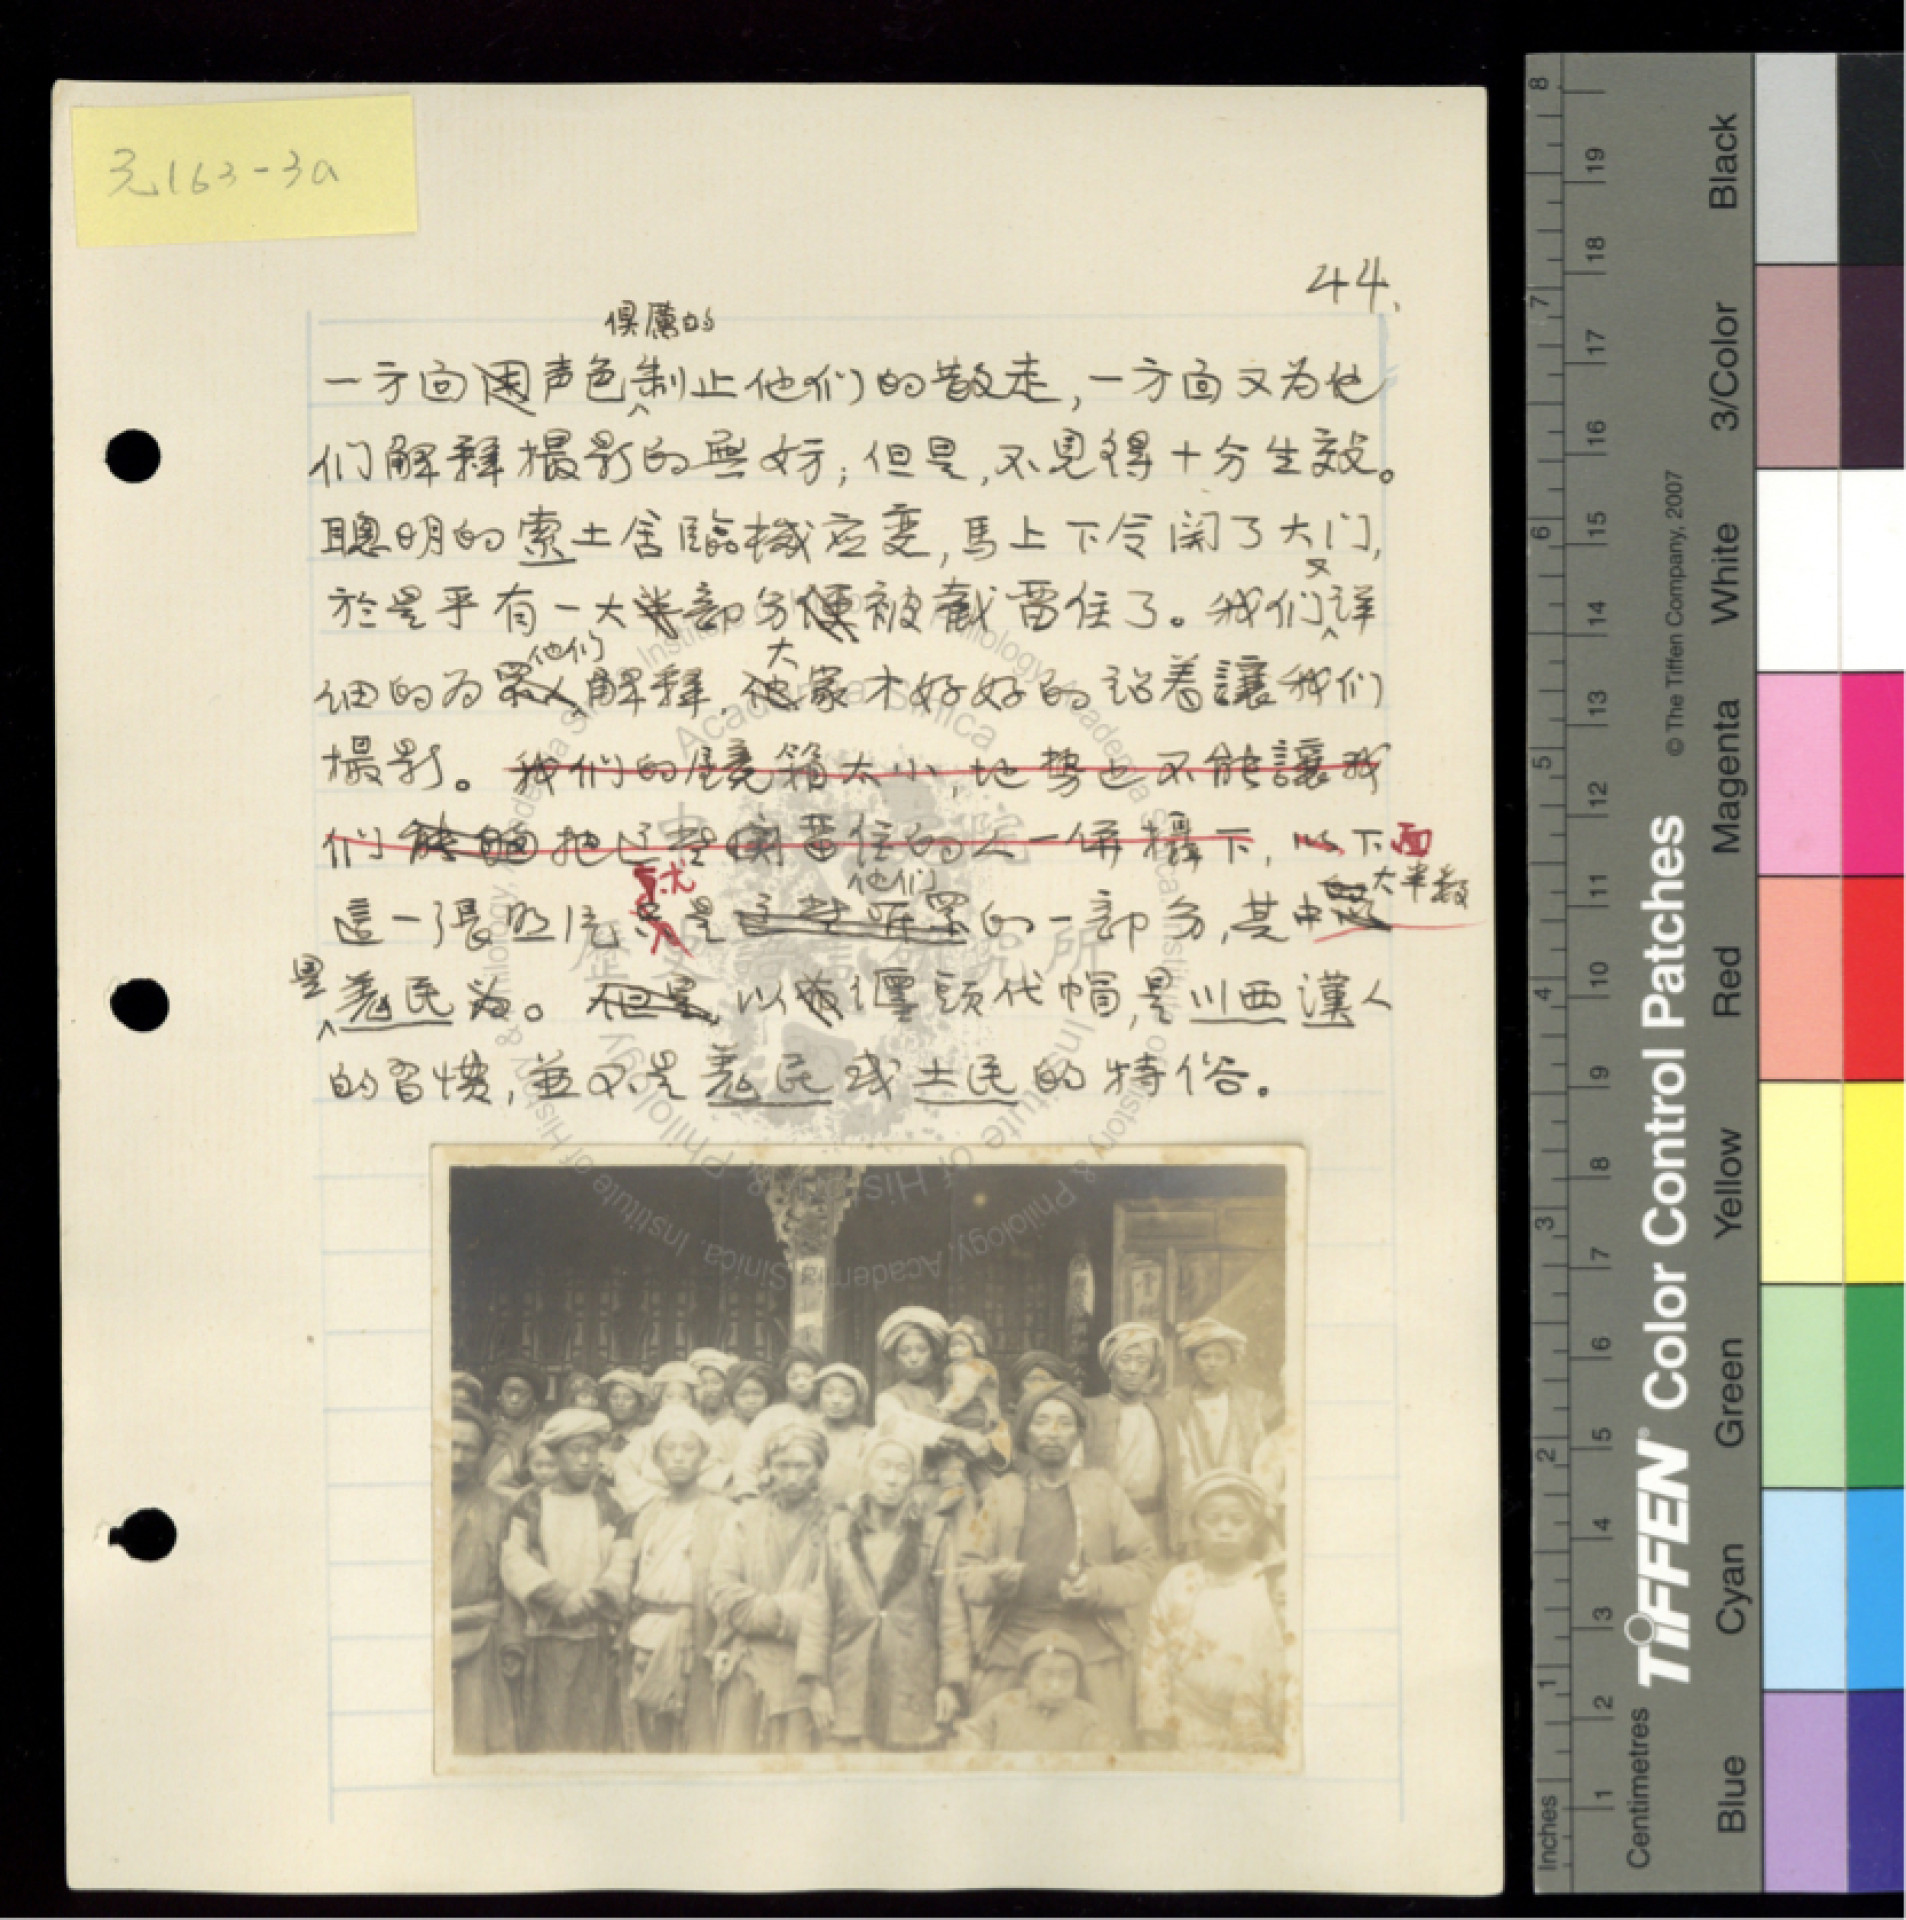 元163-3a
44.
俱厲的
一方面因声色制止他们的散走,一方面又为他
们解释攝影的無妨;但是,不見得十分生效。
聰明的索土舍臨機应变,馬上下令関了大门,
又
於是乎有一大半部分便被截留住了。我们詳
他们 大
细的为眾人解释,他家才好好的站着讓我们
攝影。我们的鏡箱太小,地势也不能讓我
们 把这些截留住的人一併攝下,以下面
就 他们 大半数
這一張照像只是這些所眾的一部分,其中
是
羌民为。但是,以布纏頭代帽,是川西漢人
的習惯,並不是羌民或土民的特俗。
中 院
歷史語言研究所
Academia Sinica
Institute of History & Philology, Academia Sinica
Inches
1
2
3
4
5
6
7
8
Centimetres
1
2
3
4
5
6
7
8
9
10
11
12
13
14
15
16
17
18
19
TIFFEN® Color Control Patches
© The Tiffen Company, 2007
Blue
Cyan
Green
Yellow
Red
Magenta
White
3/Color
Black